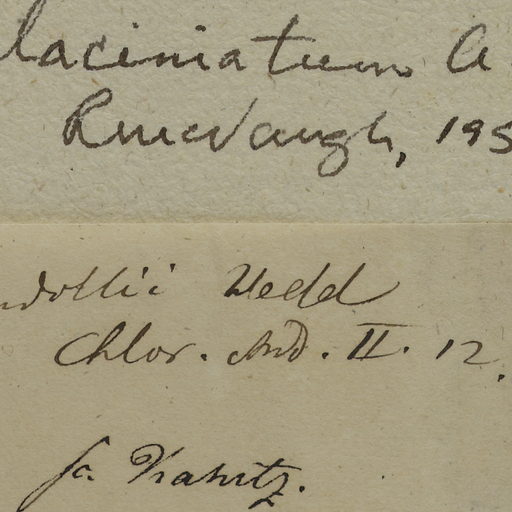 laciniatum A
R McVaugh, 195
ndollii Wedd
Chlor. And. II. 12.
sc. Kanitz.